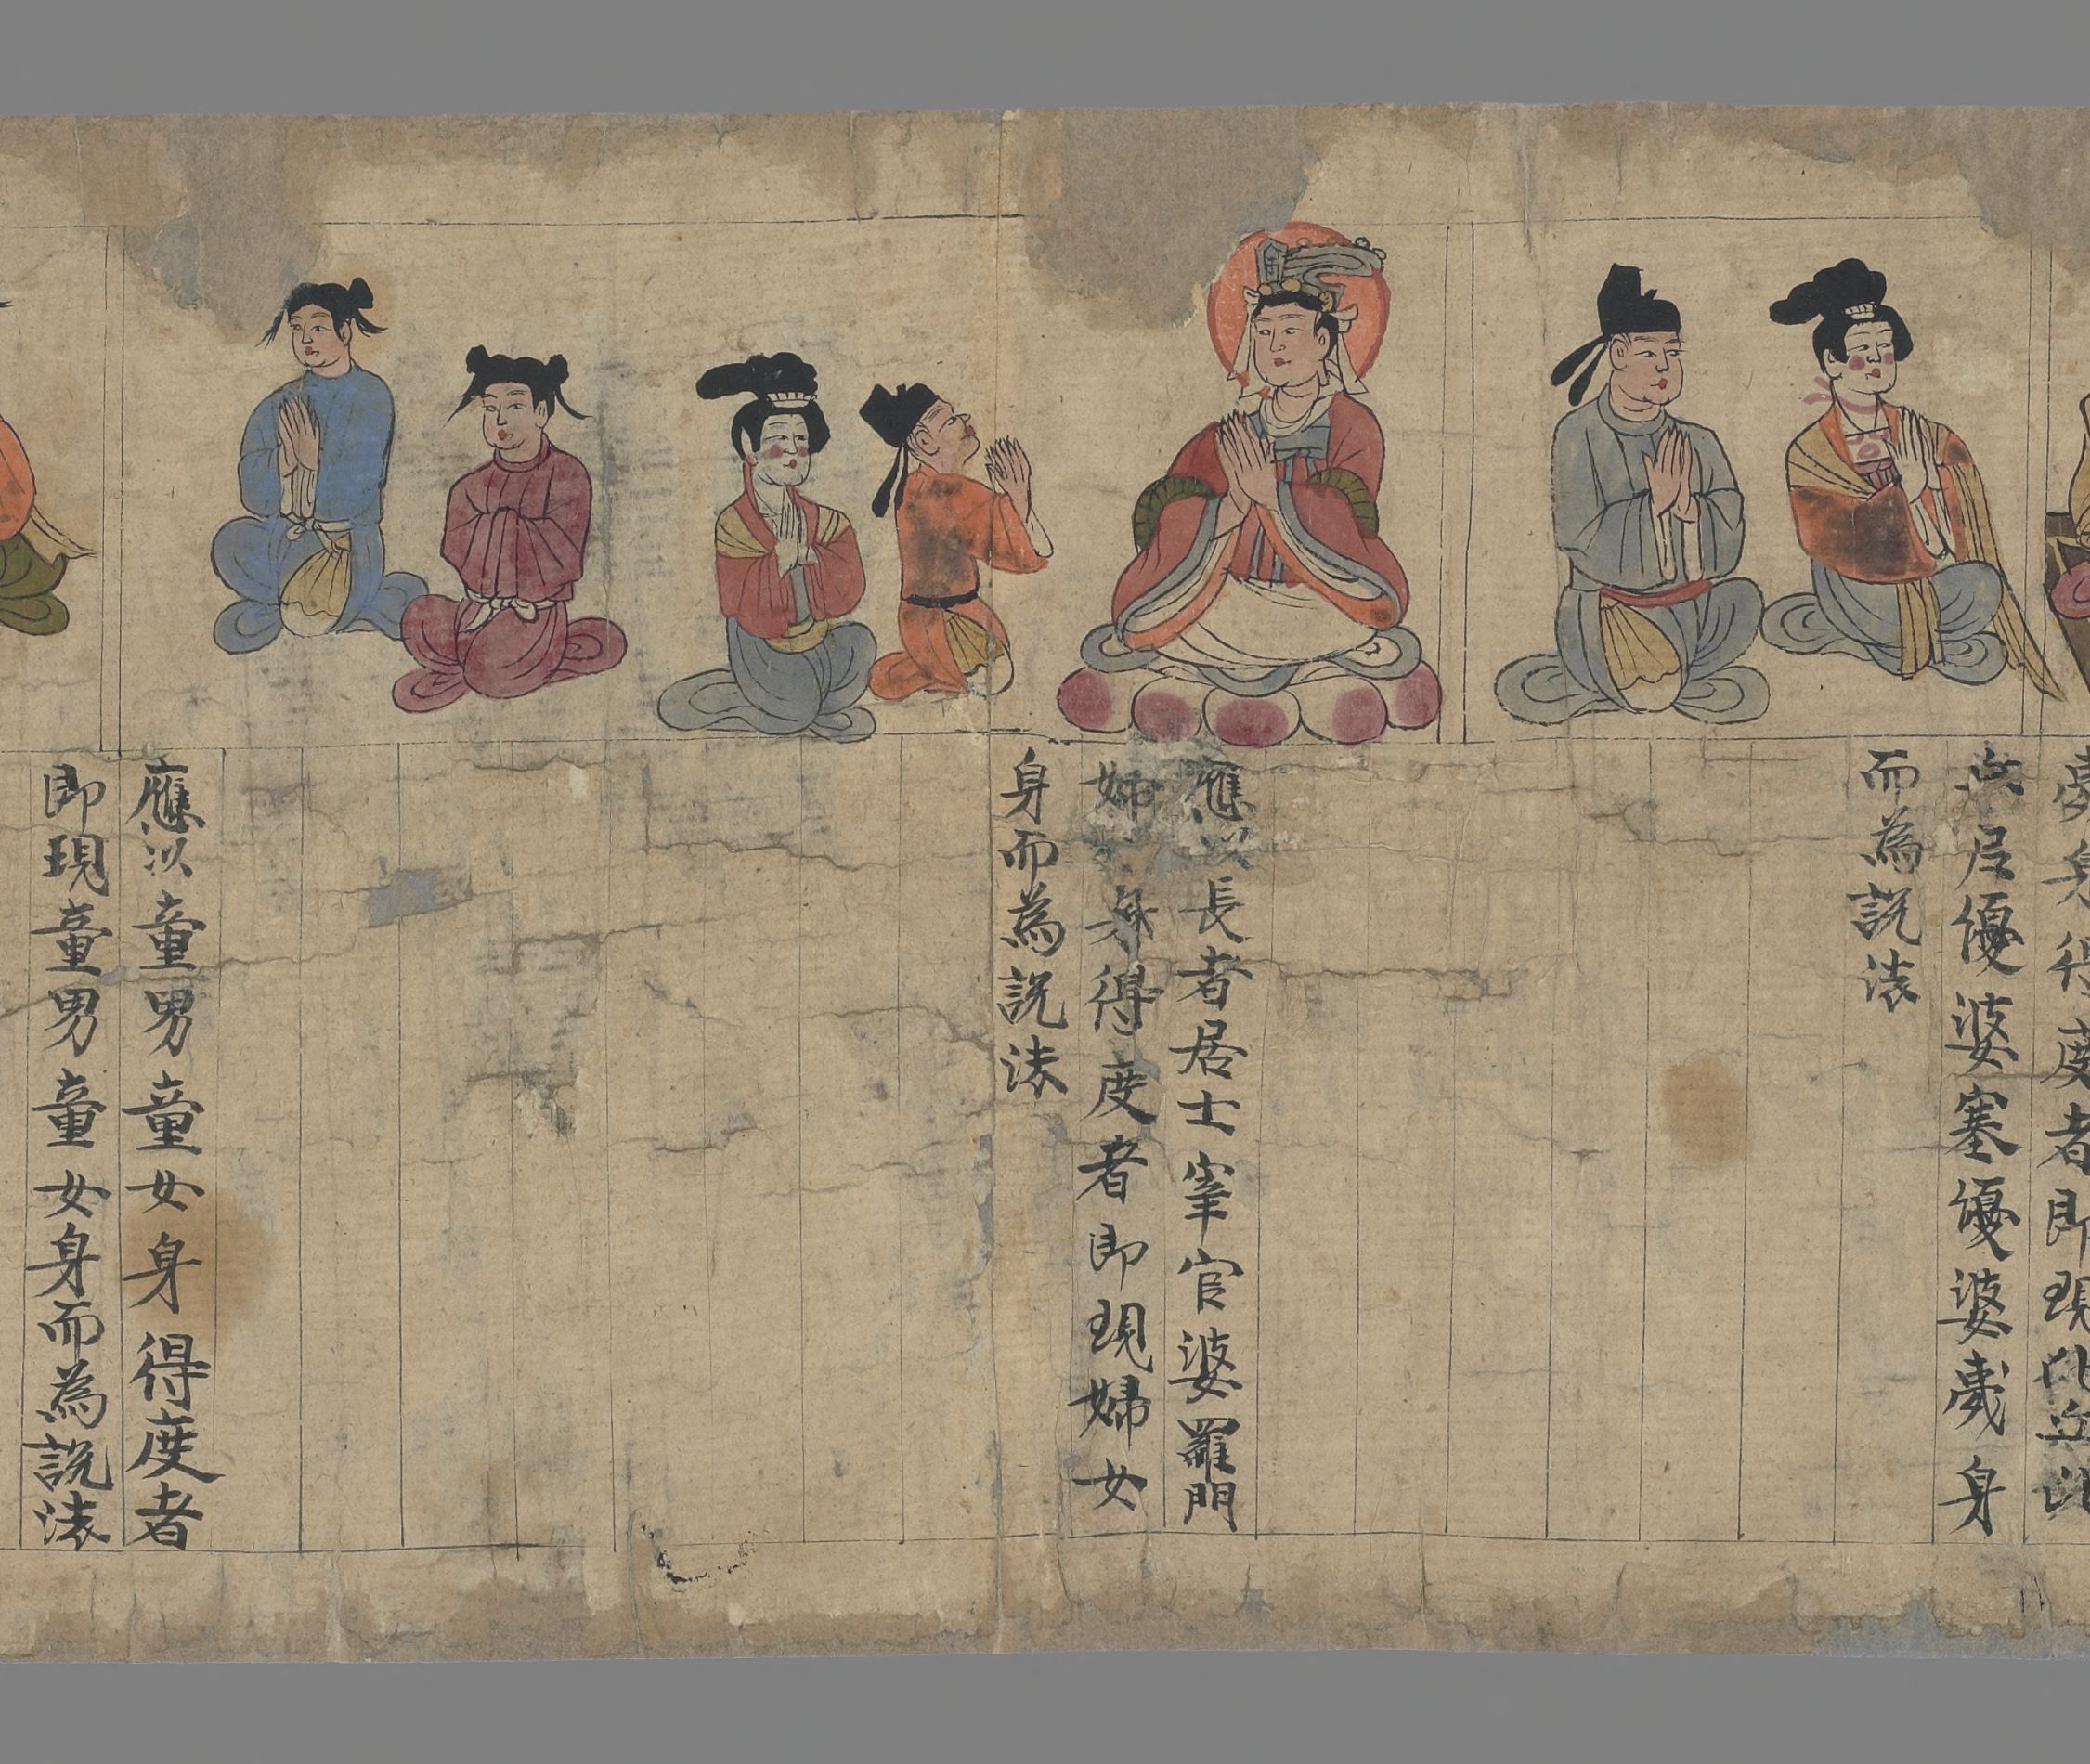 身得度者即現
丘尼優婆塞優婆夷身
而為説法
應以長者居士宰官婆羅門
婦女身得度者即現婦女
身而為説法
應以童男童女身得度者
即現童男童女身而為説法